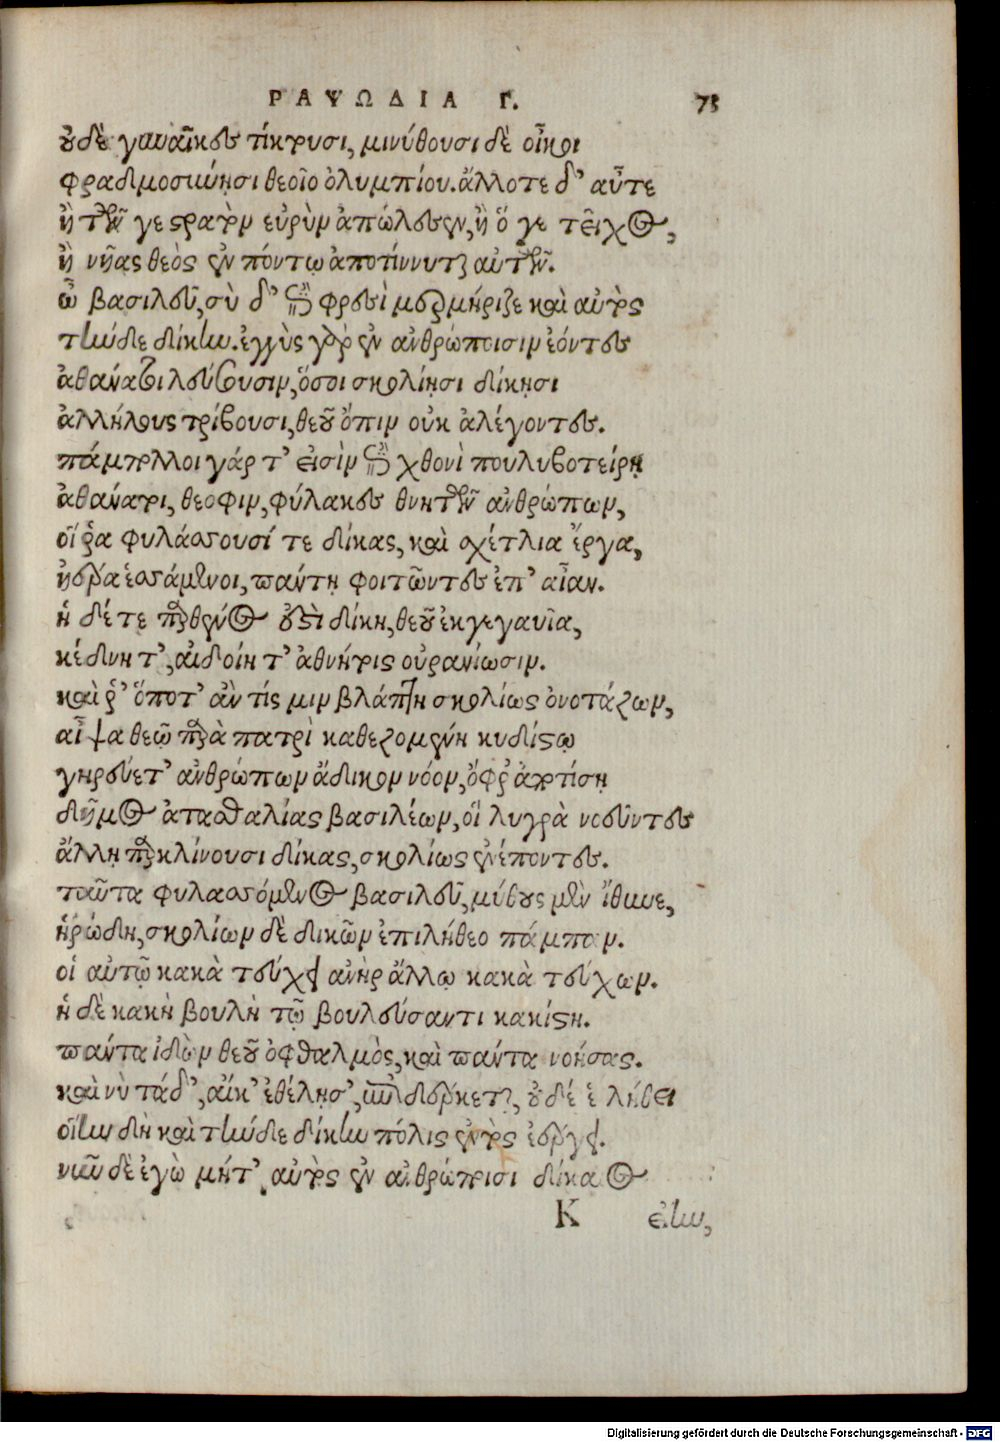 ΡΑΨΩΔΙΑ Γ. 73
οὐδὲ γυναῖκες τίκτουσι, μινύθουσι δὲ οἶκοι
φραδμοσύνῃσι θεοῖο ὀλυμπίου. ἄλλοτε δ' αὖτε
ἢ τῶν γε στρατὸν εὐρὺν ἀπώλεσεν, ἢ ὅ γε τεῖχος,
ἢ νῆας θεὸς ἐν πόντῳ ἀποτίννυται αὐτῶν.
ὦ βασιλεῦ, σὺ δ' ἐνὶ φρεσὶ μερμήριζε καὶ αὐτὸς
τήνδε δίκην. ἐγγὺς γὰρ ἐν ἀνθρώποισιν ἐόντες
ἀθάνατοι λεύσουσιν, ὅσοι σκολίῃσι δίκῃσι
ἀλλήλους τρίβουσι, θεοῦ ὄπιν οὐκ ἀλέγοντες.
πάμπολλοι γάρ τ' εἰσὶν ἐπὶ χθονὶ πουλυβοτείρῃ
ἀθάνατοι, θεόφιν, φύλακες θνητῶν ἀνθρώπων,
οἵ ῥα φυλάσσουσί τε δίκας, καὶ σχέτλια ἔργα,
ἠέρα ἑσσάμενοι, πάντη φοιτῶντες ἐπ' αἶαν.
ἡ δέ τε παρθένος ἐστὶ δίκη, θεοῦ ἐκγεγαυῖα,
κέδνη τ', αἰδοίη τ' ἀθνήτοις οὐρανίωσιν.
καὶ ῥ' ὅποτ' ἄν τίς μιν βλάπτῃ σκολίως ὀνοτάζων,
αἶψα θεῷ παρὰ πατρὶ καθεζομένη κυδίστῳ
γηρεύετ' ἀνθρώπων ἄδικον νόον, ὄφρ' ἀρτίσῃ
δῆμος ἀτασθαλίας βασιλέων, οἳ λυγρὰ νοεῦντες
ἄλλῃ παρκλίνουσι δίκας, σκολίως ἐνέποντες.
ταῦτα φυλασσόμενος βασιλεῦ, μύθους μὲν ἴθυνε,
ἡρώδη, σκολίων δὲ δικῶν ἐπιλήθεο πάμπαν.
οἱ αὐτῷ κακὰ τεύχει ἀνὴρ ἄλλῳ κακὰ τεύχων.
ἡ δὲ κακὴ βουλὴ τῷ βουλεύσαντι κακίστη.
πάντα ἰδὼν θεοῦ ὀφθαλμὸς, καὶ πάντα νοήσας.
καὶ νὺ τάδ', αἴκ' ἐθέλῃσ', ἐπιδέρκεται, οὐδέ ἑ λήθει
οἵην δὴ καὶ τήνδε δίκην πόλις ἐντὸς ἐέργει.
νῦν δὲ ἐγὼ μήτ' αὐτὸς ἐν ἀνθρώποισι δίκαιος
Κ εἴην,
Digitalisierung gefördert durch die Deutsche Forschungsgemeinschaft - DFG